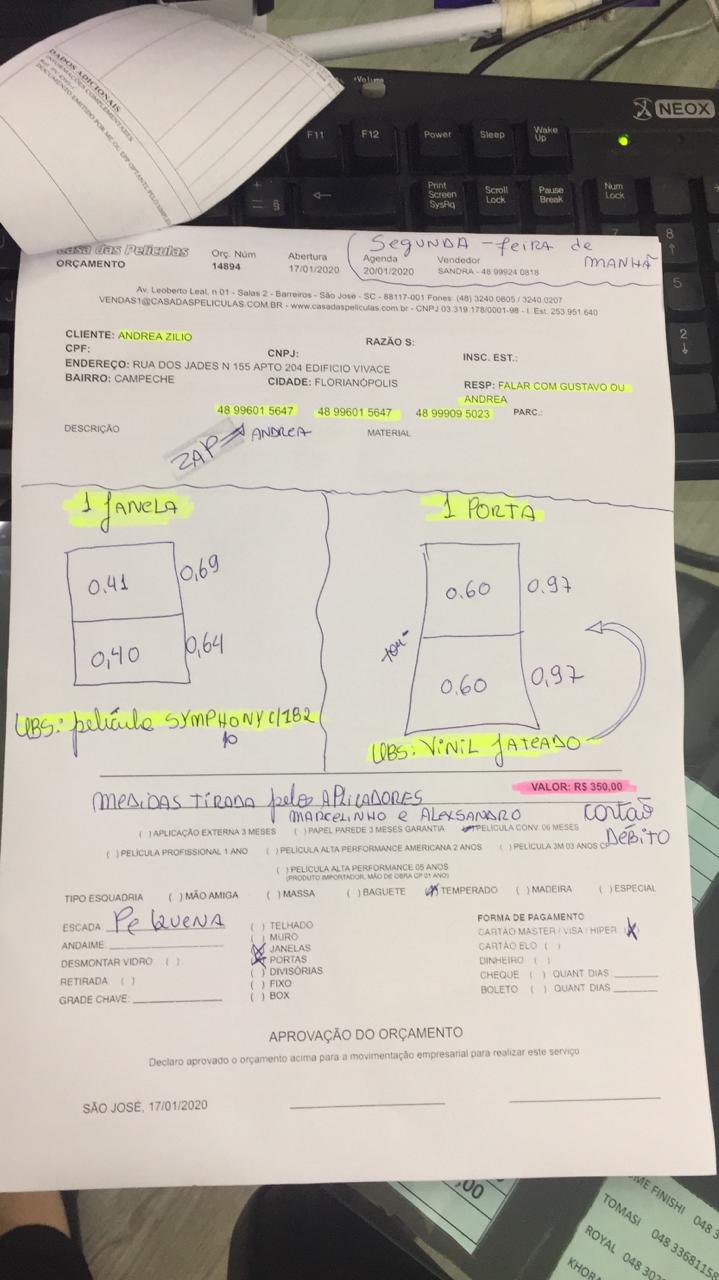 DADOS ADICIONAIS
INFORMAÇÕES COMPLEMENTARES
DOCUMENTO EMITIDO POR ME OU EPP OPTANTE PELO SIMPLES
Volume
NEOX
F11 F12 Power Sleep Wake Up
Print Screen SysRq Scroll Lock Pause Break Num Lock
7 8
5
2
Casa das Películas
ORÇAMENTO
Orç. Núm
14894
Abertura
17/01/2020
SEGUNDA - feira de MANHÃ
Agenda
20/01/2020
Vendedor
SANDRA - 48 99924 0818
Av. Leoberto Leal, n 01 - Salas 2 - Barreiros - São José - SC - 88117-001 Fones: (48) 3240.0605 / 3240.0207
VENDAS1@CASADASPELICULAS.COM.BR - www.casadaspeliculas.com.br - CNPJ 03.319.178/0001-98 - I. Est. 253.951.640
CLIENTE: ANDREA ZILIO RAZÃO S:
CPF: CNPJ: INSC. EST.:
ENDEREÇO: RUA DOS JADES N 155 APTO 204 EDIFICIO VIVACE
BAIRRO: CAMPECHE CIDADE: FLORIANÓPOLIS RESP: FALAR COM GUSTAVO OU ANDREA
48 99601 5647 48 99601 5647 48 99909 5023 PARC.:
DESCRIÇÃO MATERIAL
ZAP → ANDREA
1 JANELA
0.41 0,69
0,40 0,64
OBS: película SYMPHONY C/182
10
1 PORTA
0.60 0.97
0.60 0,97
OBS: VINIL JATEADO
VALOR: R$ 350,00
MEDIDAS TIRADA pelos APLICADORES
MARCELINHO e ALEXSANDRO
Cartão DÉBITO
( ) APLICAÇÃO EXTERNA 3 MESES ( ) PAPEL PAREDE 3 MESES GARANTIA PELÍCULA CONV. 06 MESES
( ) PELÍCULA PROFISSIONAL 1 ANO ( ) PELÍCULA ALTA PERFORMANCE AMERICANA 2 ANOS ( ) PELÍCULA 3M 03 ANOS CP
( ) PELÍCULA ALTA PERFORMANCE 05 ANOS
(PRODUTO IMPORTADOR, MÃO DE OBRA CP 01 ANO)
TIPO ESQUADRIA ( ) MÃO AMIGA ( ) MASSA ( ) BAGUETE (X) TEMPERADO ( ) MADEIRA ( ) ESPECIAL
ESCADA PEQUENA
ANDAIME:
DESMONTAR VIDRO ( )
RETIRADA: ( )
GRADE CHAVE:
( ) TELHADO
( ) MURO
(X) JANELAS
(X) PORTAS
( ) DIVISÓRIAS
( ) FIXO
( ) BOX
FORMA DE PAGAMENTO
CARTÃO MASTER / VISA / HIPER (X)
CARTÃO ELO ( )
DINHEIRO ( )
CHEQUE ( ) QUANT DIAS
BOLETO ( ) QUANT DIAS
APROVAÇÃO DO ORÇAMENTO
Declaro aprovado o orçamento acima para a movimentação empresarial para realizar este serviço
SÃO JOSÉ, 17/01/2020
,00
ME FINISHI 048 3
TOMASI 048 33681158
ROYAL 048 30
KHOR